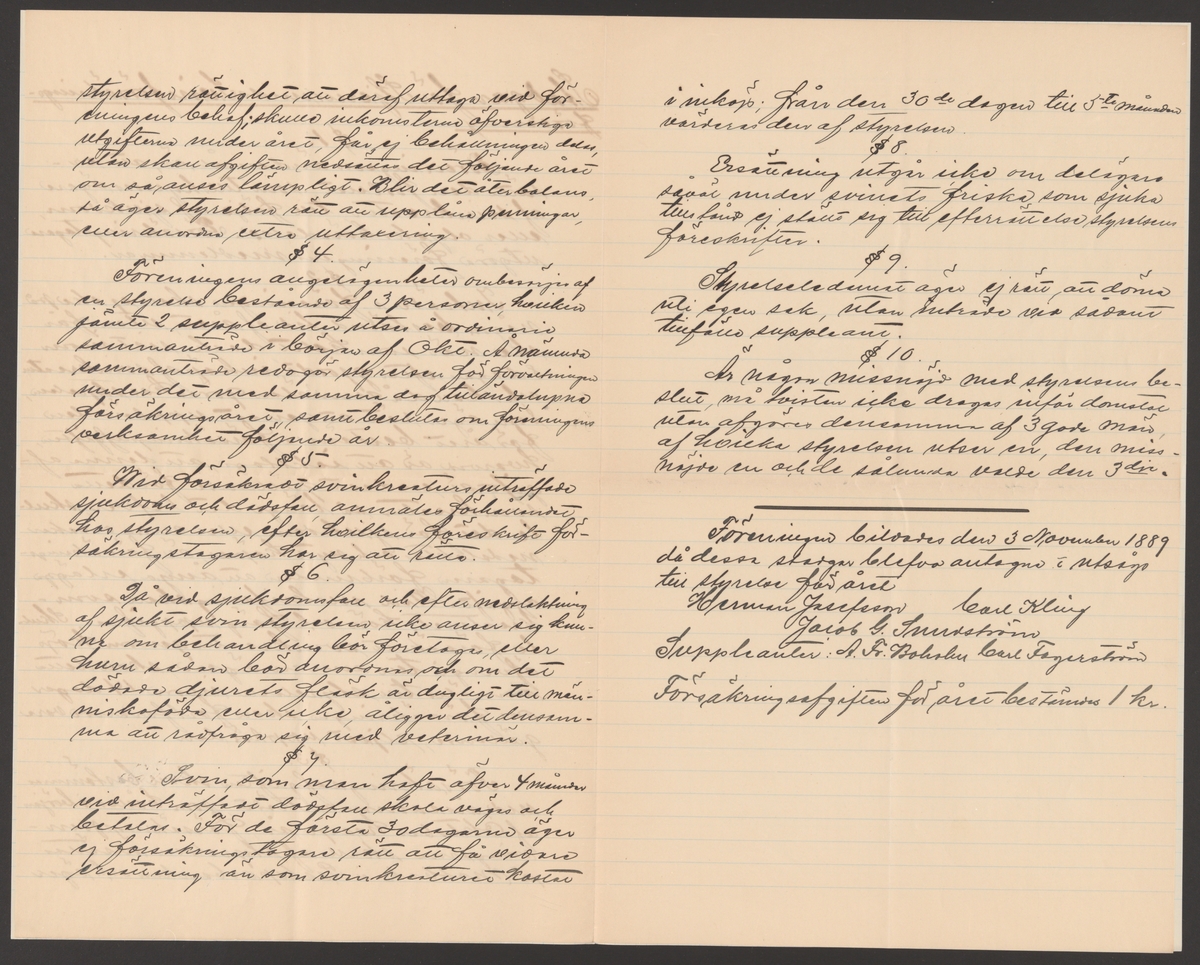 styrelsen rättighet att däraf uttaga vid för-
eningens behof; skulle inkomsterna öfverstiga
utgifterna under året, får ej behållningen delas,
utan skall afgiften nedsättas det följande året
om så anses lämpligt. Blir det åter balans,
så äger styrelsen rätt att upplåna penningar,
eller anordna extra uttaxering.
§ 4.
Föreningens angelägenheter ombesörjes af
en styrelse bestående af 3 personer, hvilken
jämte 2 suppleanter utses å ordinarie
sammanträde i början af Okt. Å nämnda
sammanträde redogör styrelsen för förvaltningen
under det med samma dag tilländalupna
försäkringsåret, samt beslutas om föreningens
verksamhet följande år
§ 5
Wid försäkradt svinkreaturs inträffade
sjukdoms och dödsfall, anmäles förhållandet
hos styrelsen, efter hvilkens föreskrift för-
säkringstagaren har sig att rätta.
§ 6.
Då vid sjukdomsfall och efter nedslaktning
af sjukt svin styrelsen icke anser sig kun-
na om behandling bör företaga, eller
huru sådan bör anordnas och om det
dödade djurets fläsk är dugligt till män-
niskoföda eller icke, åligger det densam-
ma att rådfråga sig med veterinär.
§ 7.
Svin, som man haft öfver 4 månader
vid inträffadt dödsfall skola vägas och
betalas. För de första 30 dagarna äger
ej försäkringstagare rätt att få vidare
ersättning än som svinkreaturet kostat
i inköp: från den 30de dagen till 5te månaden
värderas den af styrelsen.
§ 8.
Ersättning utgår icke om delägare
såväl under svinets friska som sjuka
tillstånd ej ställt sig till efterrättelse styrelsens
föreskrifter.
§ 9.
Styrelseledamot äger ej rätt, att döma
uti egen sak, utan inträde vid sådant
tillfälle suppleant.
§ 10.
Är någon missnöjd med styrelsens be-
slut, må tvisten icke dragas inför domstol
utan afgöres densamma af 3 gode män,
af hvilka styrelsen utser en, den miss-
nöjde en och de sålunda valde den 3die.
Föreningen bildades den 3 November 1889
då dessa stadgar blefvo antagne i utsågs
till styrelse för året
Herman Josefsson Carl Kling
Jacob G. Sundström
Suppleanter: A. Fr. Boholm Carl Fagerström
Försäkringsafgiften för året bestämdes 1 kr.